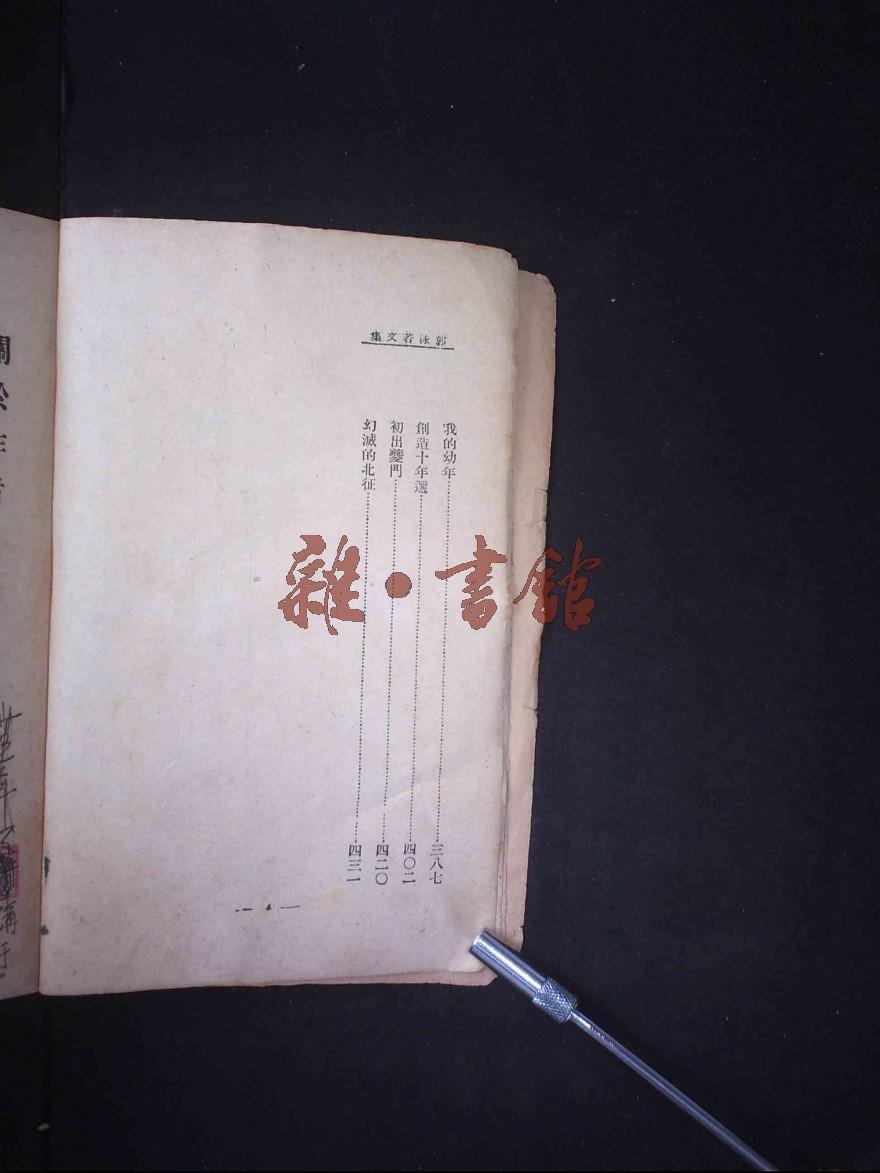 郭沫若文集
我的幼年……三八七
創造十年選……四〇二
初出夔門……四二〇
幻滅的北征……四三一
雜·書館